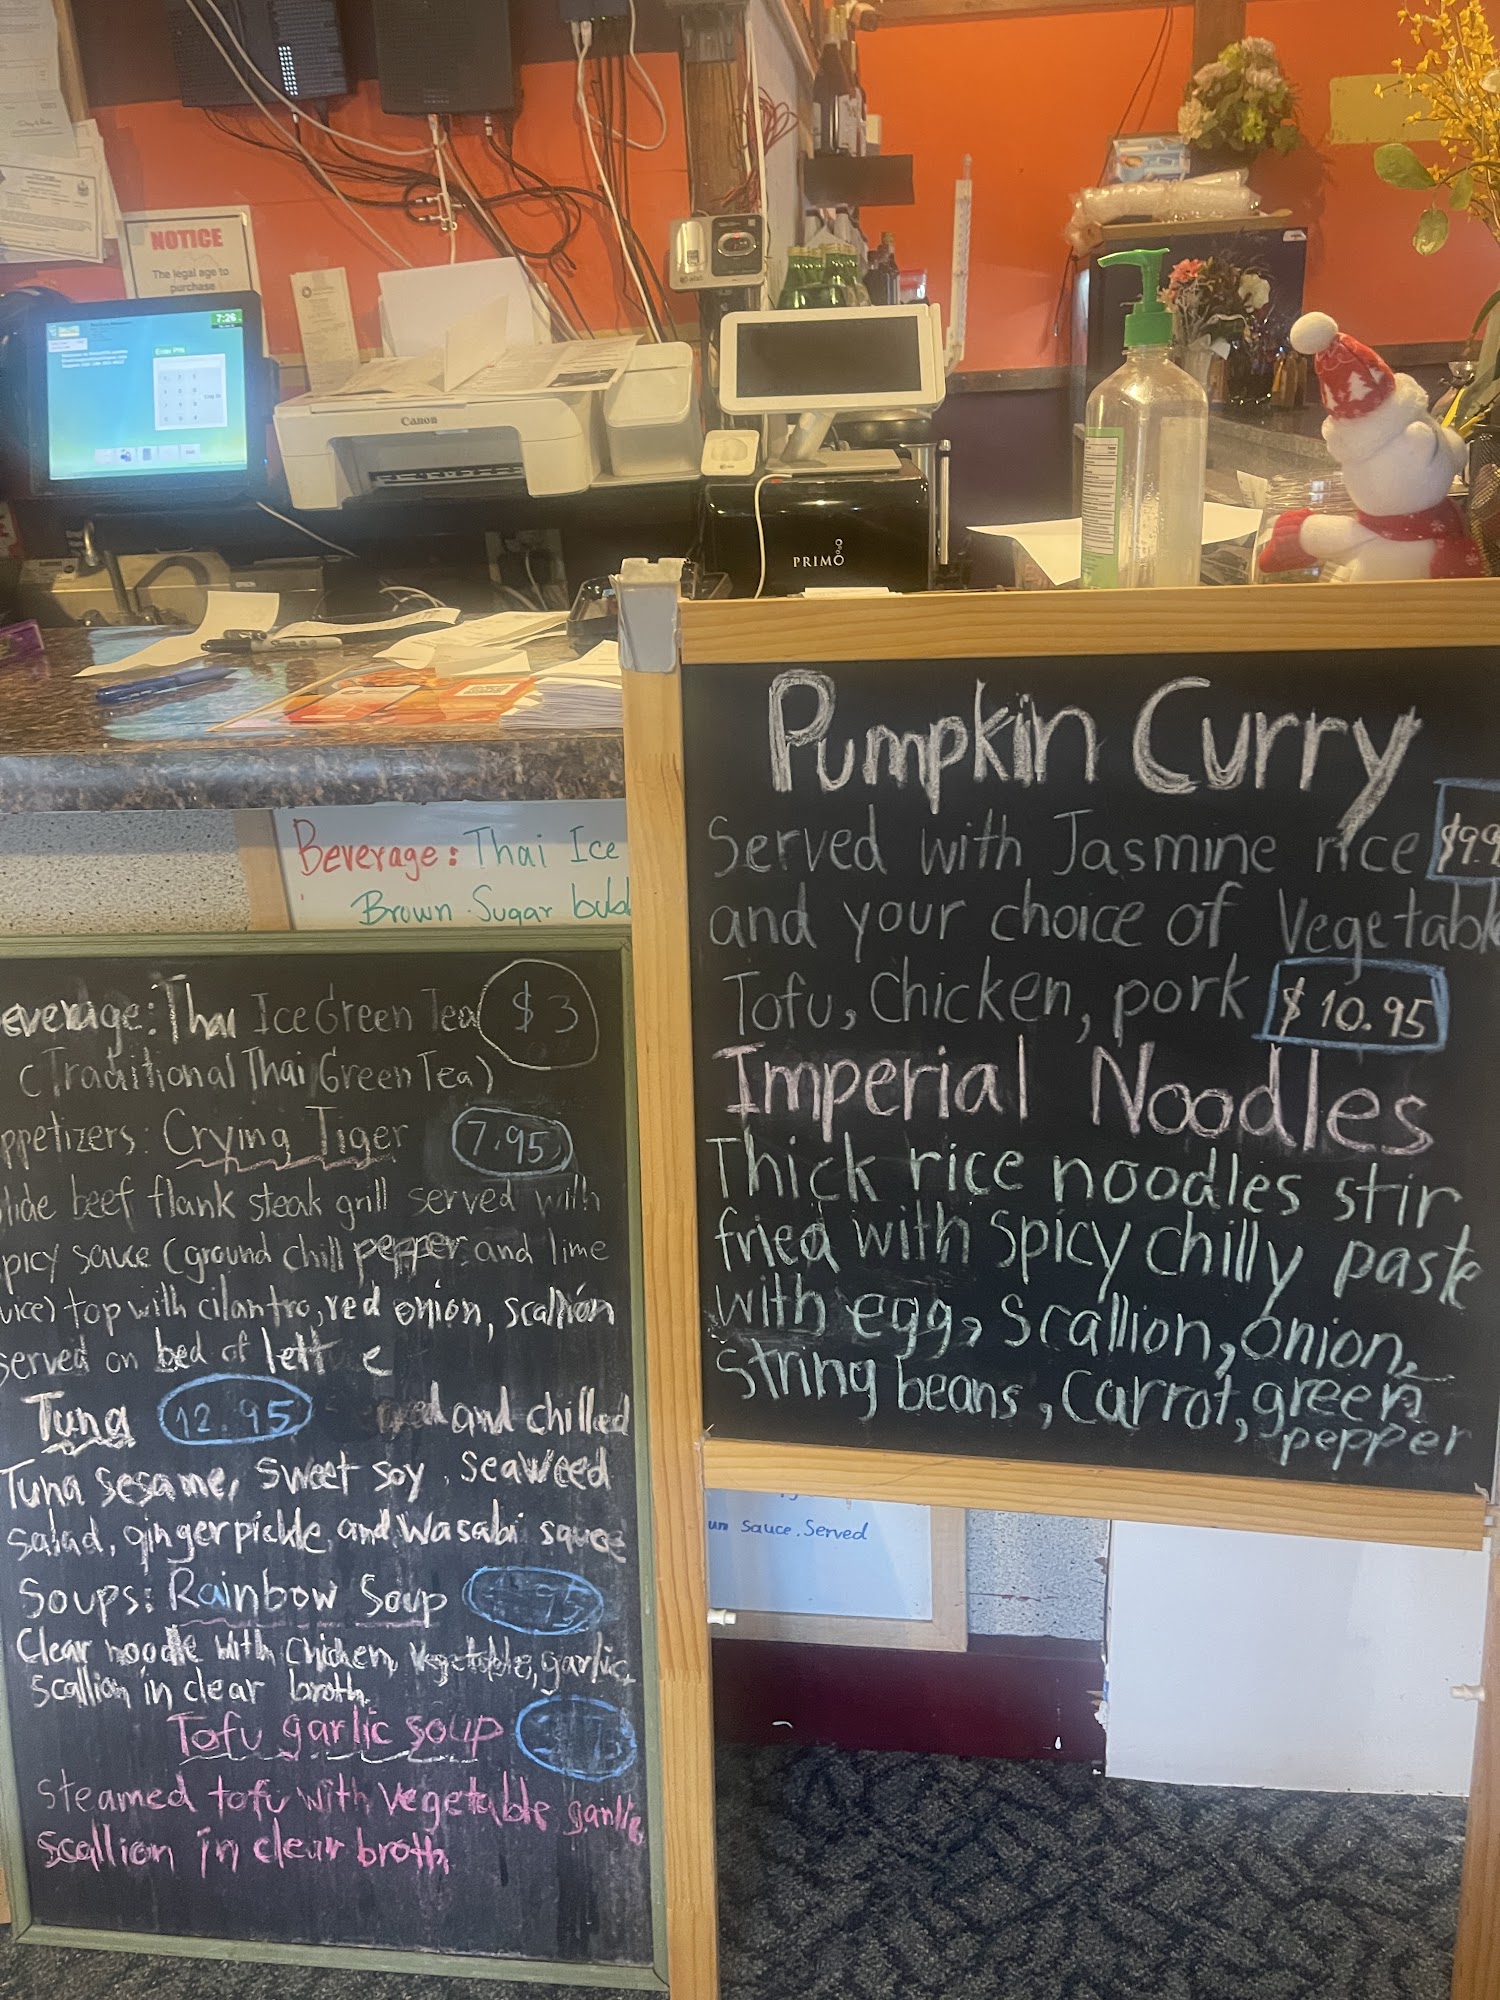 NOTICE
The legal age to
purchase
7:26
Enter PIN
Canon
PRIMO
Beverage: Thai Ice
Brown Sugar
Pumpkin Curry
Served with Jasmine rice
and your choice of Vegetable
Tofu, Chicken, pork $10.95
Imperial Noodles
Thick rice noodles stir
fried with spicy chilly paste
with egg, scallion, onion,
string beans, carrot, green
pepper
everage: Thai Ice Green Tea $3
(Traditional Thai Green Tea)
ppetizers: Crying Tiger 7.95
beef flank steak grill served with
picy sauce (ground chill pepper and lime
uice) top with cilantro, red onion, scallion
served on bed of lett e
Tuna 12.95 and chilled
Tuna sesame, sweet soy, seaweed
salad, ginger pickle, and wasabi squce
Soups: Rainbow Soup
Clear noodle with chicken, vegetable, garlic,
scallion in clear broth.
Tofu garlic soup
steamed tofu with vegetable garlic,
scallion in clear broth,
sauce. Served